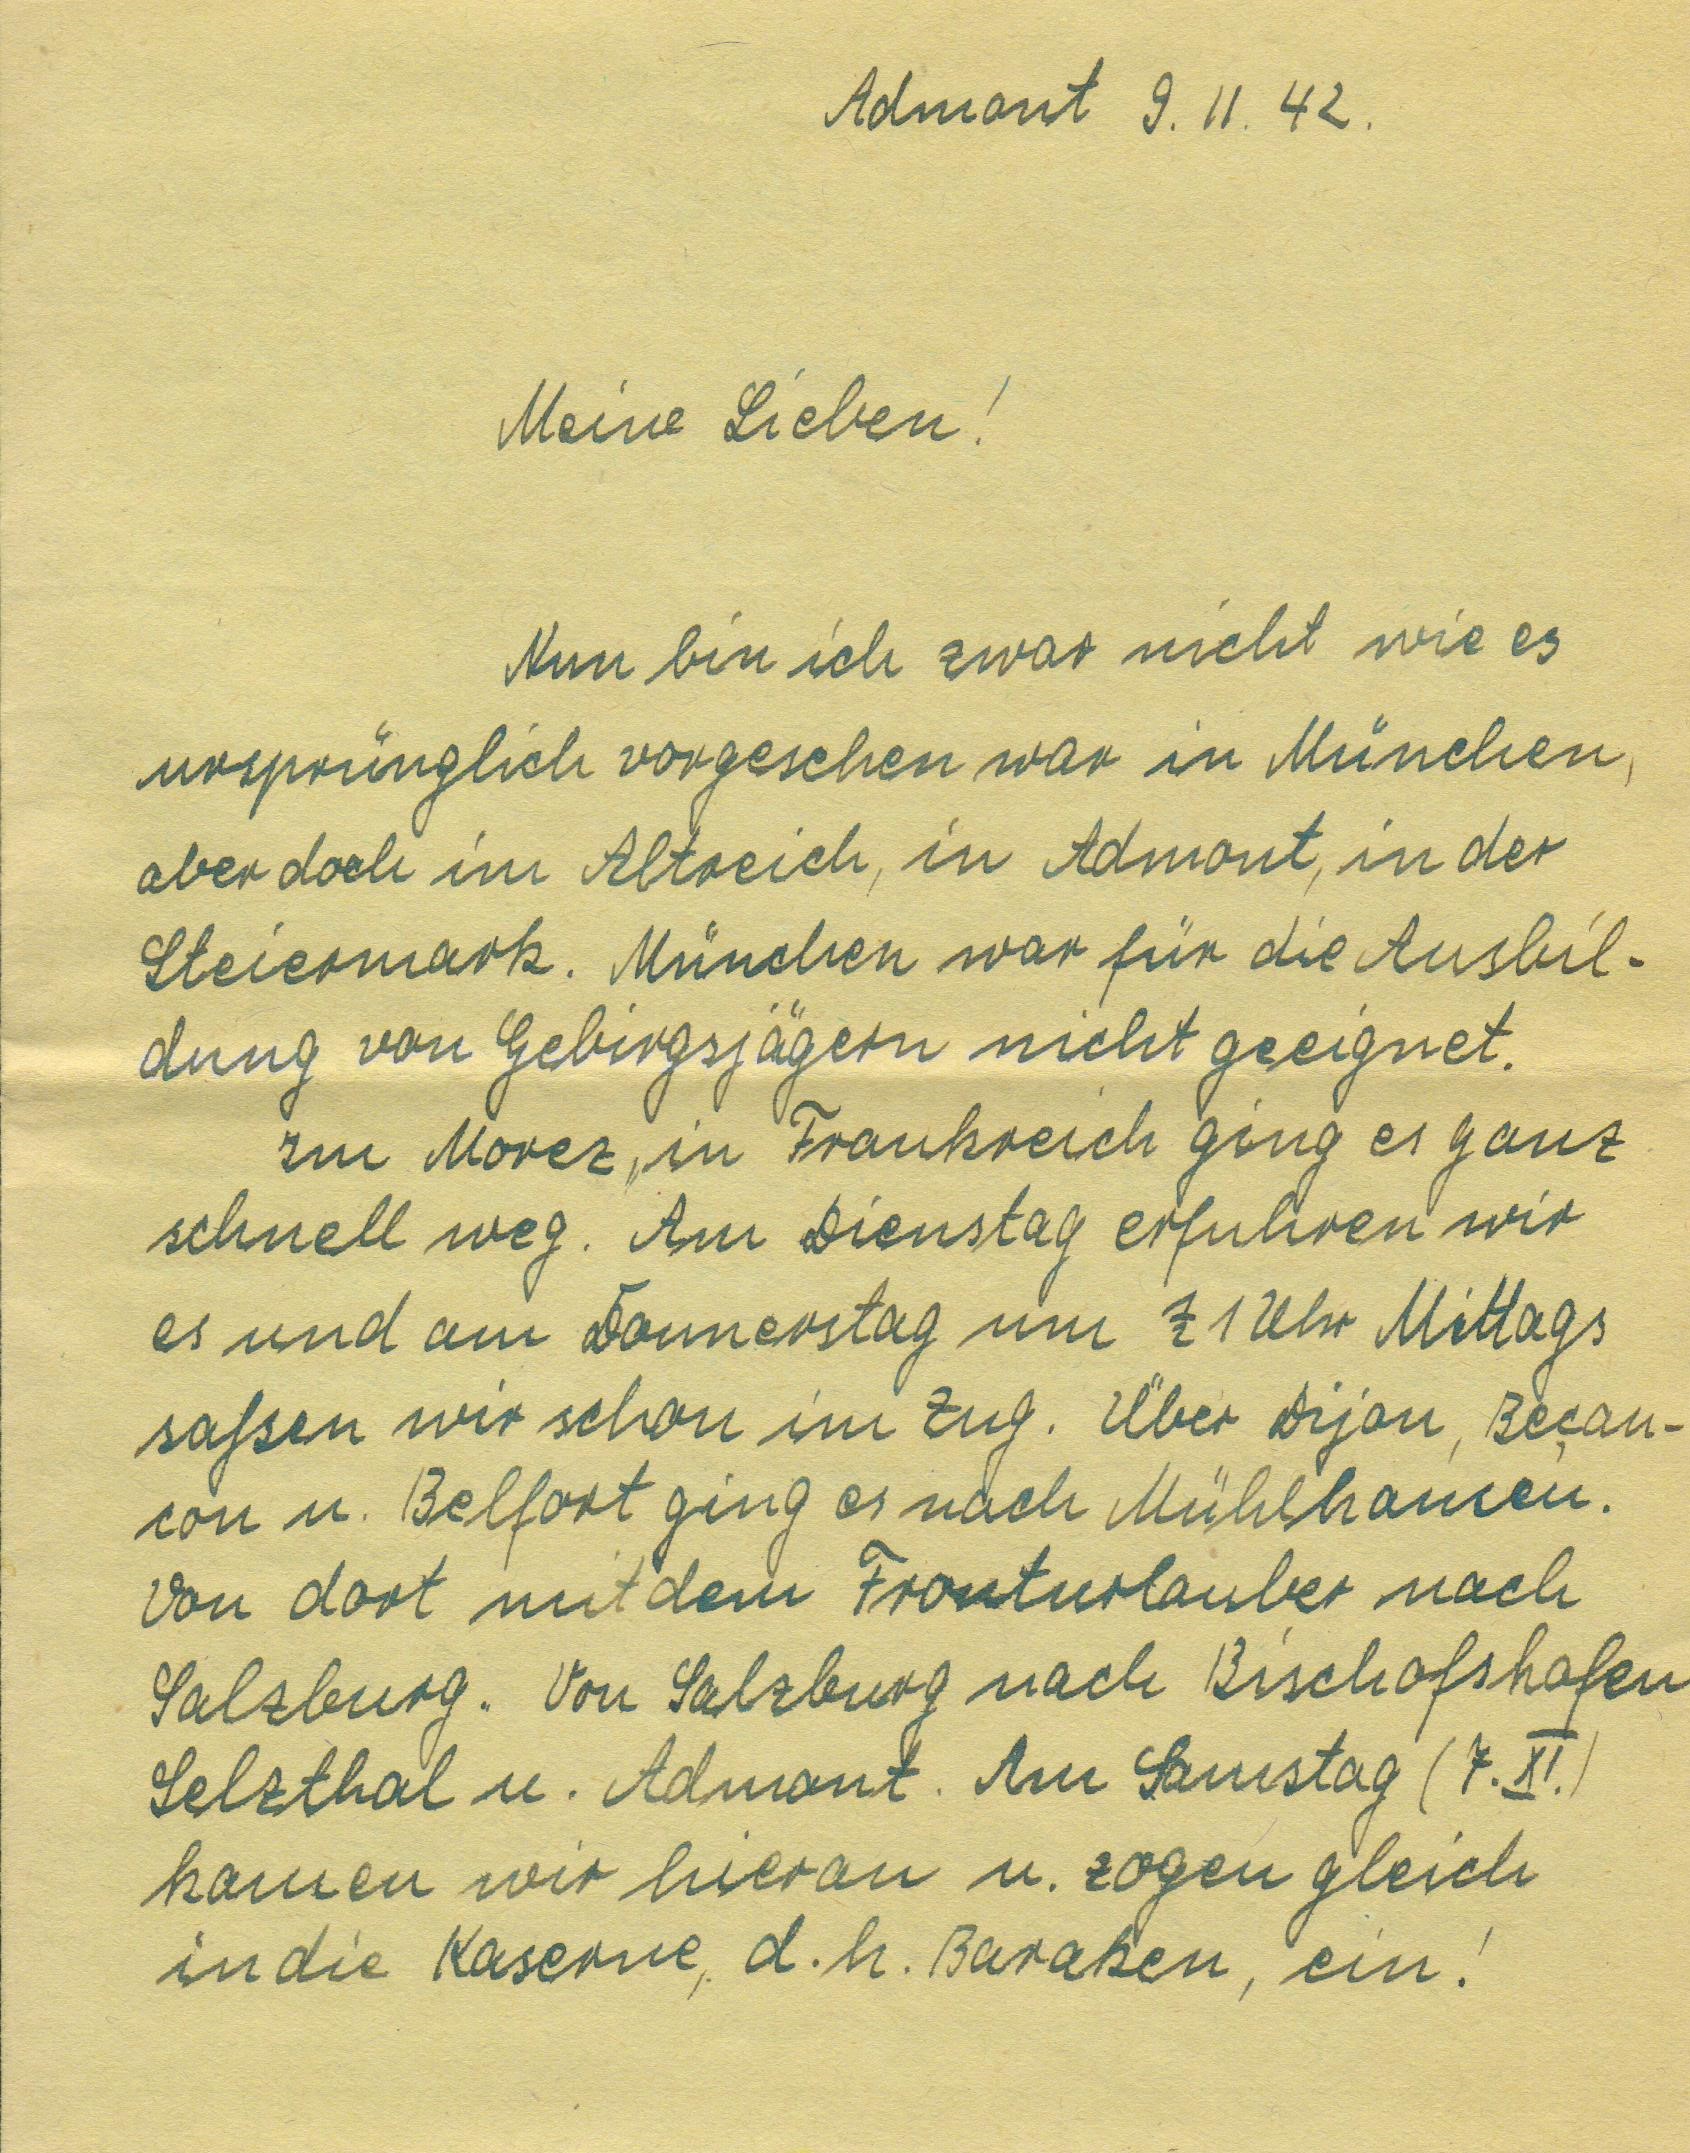 Admont 9. 11. 42.
Meine Lieben!
Nun bin ich zwar nicht wie es
ursprünglich vorgesehen war in München,
aber doch im Altreich, in Admont, in der
Steiermark. München war für die Ausbil-
dung von Gebirgsjägern nicht geeignet.
Morez, in Frankreich ging es ganz
schnell weg. Am Dienstag erfuhren wir
es und am Donnerstag um 1 Uhr Mittags
saßsen wir schon im Zug. Über Dijon, Beçan-
con u. Belfort ging es nach Mühlhausen.
Von dort mit dem Fronturlauber nach
Salzburg. Von Salzburg nach Bischofshofen
Selzthal u. Admont. Am Samstag (7. XI.)
kamen wir hier an u. zogen gleich
in die Kaserne, d. h. Baraken, ein!